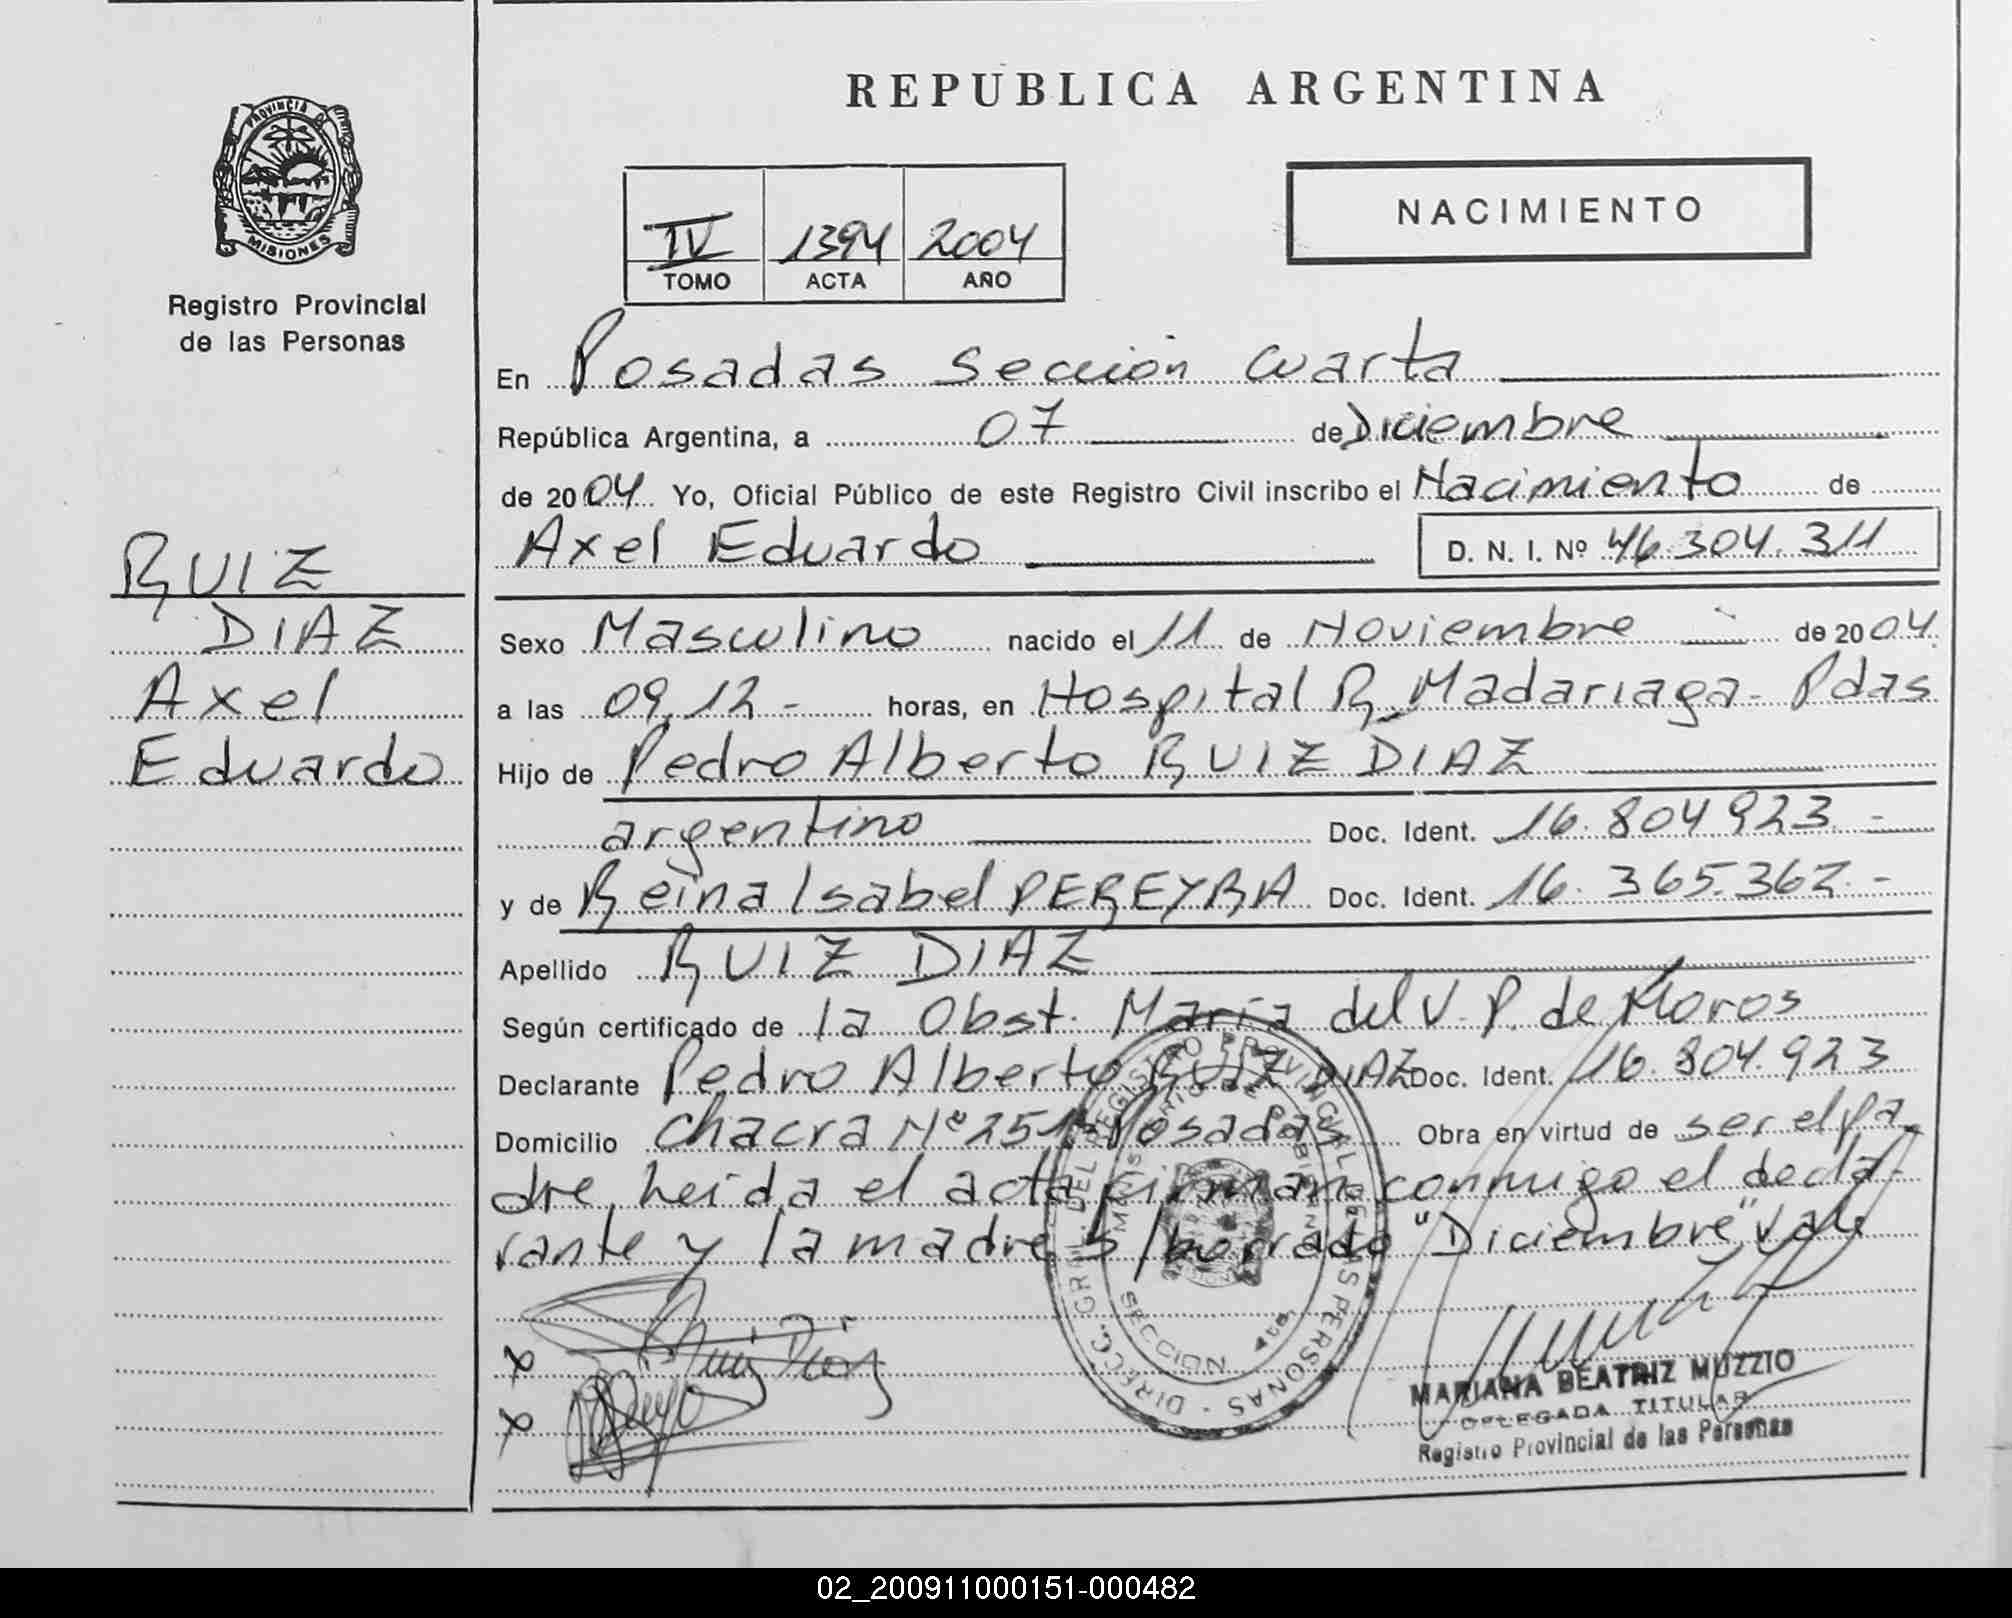 PROVINCIA DE
MISIONES
Registro Provincial
de las Personas
RUIZ
DIAZ
Axel
Eduardo
REPUBLICA ARGENTINA
NACIMIENTO
IV 1394 2004
TOMO ACTA AÑO
En Posadas Sección Cuarta
República Argentina, a 07 de Diciembre
de 2004 Yo, Oficial Público de este Registro Civil inscribo el Nacimiento de
Axel Eduardo D. N. I. Nº 46.304.311
Sexo Masculino nacido el 11 de Noviembre de 2004
a las 09,12 - horas, en Hospital R. Madariaga - Pdas
Hijo de Pedro Alberto RUIZ DIAZ
argentino Doc. Ident. 16.804923.-
y de Reina Isabel PEREYRA Doc. Ident. 16.365.362.-
Apellido RUIZ DIAZ
Según certificado de la Obst. María del V. P. de Moros
Declarante Pedro Alberto RUIZ DIAZ Doc. Ident. 16.804.923
Domicilio Chacra Nº 251 - Posadas Obra en virtud de ser el pa
dre, leida el acta firman conmigo el decla-
rante y la madre S/borrado "Diciembre" vale
x Ruiz Diaz
x
DIRECC. GRAL. DEL REGISTRO PROVINCIAL DE LAS PERSONAS
MINISTERIO DE GOBIERNO
SECCION 4ta.
MARIANA BEATRIZ MUZZIO
DELEGADA TITULAR
Registro Provincial de las Personas
02_200911000151-000482